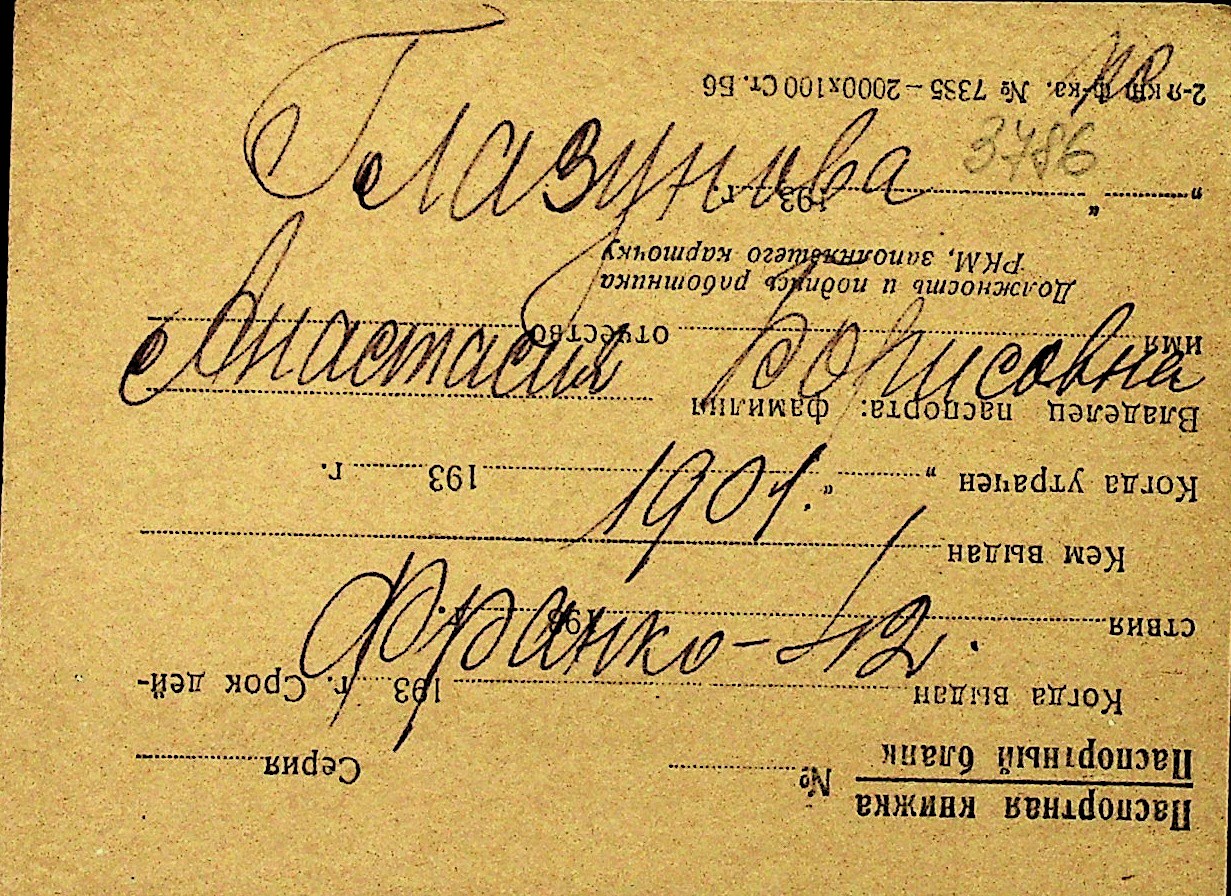 Глазунова
3786
Анастасия Борисовна
1901.
Франко-12.
Паспортная книжка
Паспортный бланк
№ Серия
Когда выдан 193 г. Срок дей-
ствия 193 г.
Кем выдан
Когда утрачен „ “ 193 г.
Владелец паспорта: фамилия
имя отчество
Должность и подпись работника
РКМ, заполнявшего карточку
„ “ 193 г.
2-я кт ф-ка. № 7385—2000х100 Ст. Б6